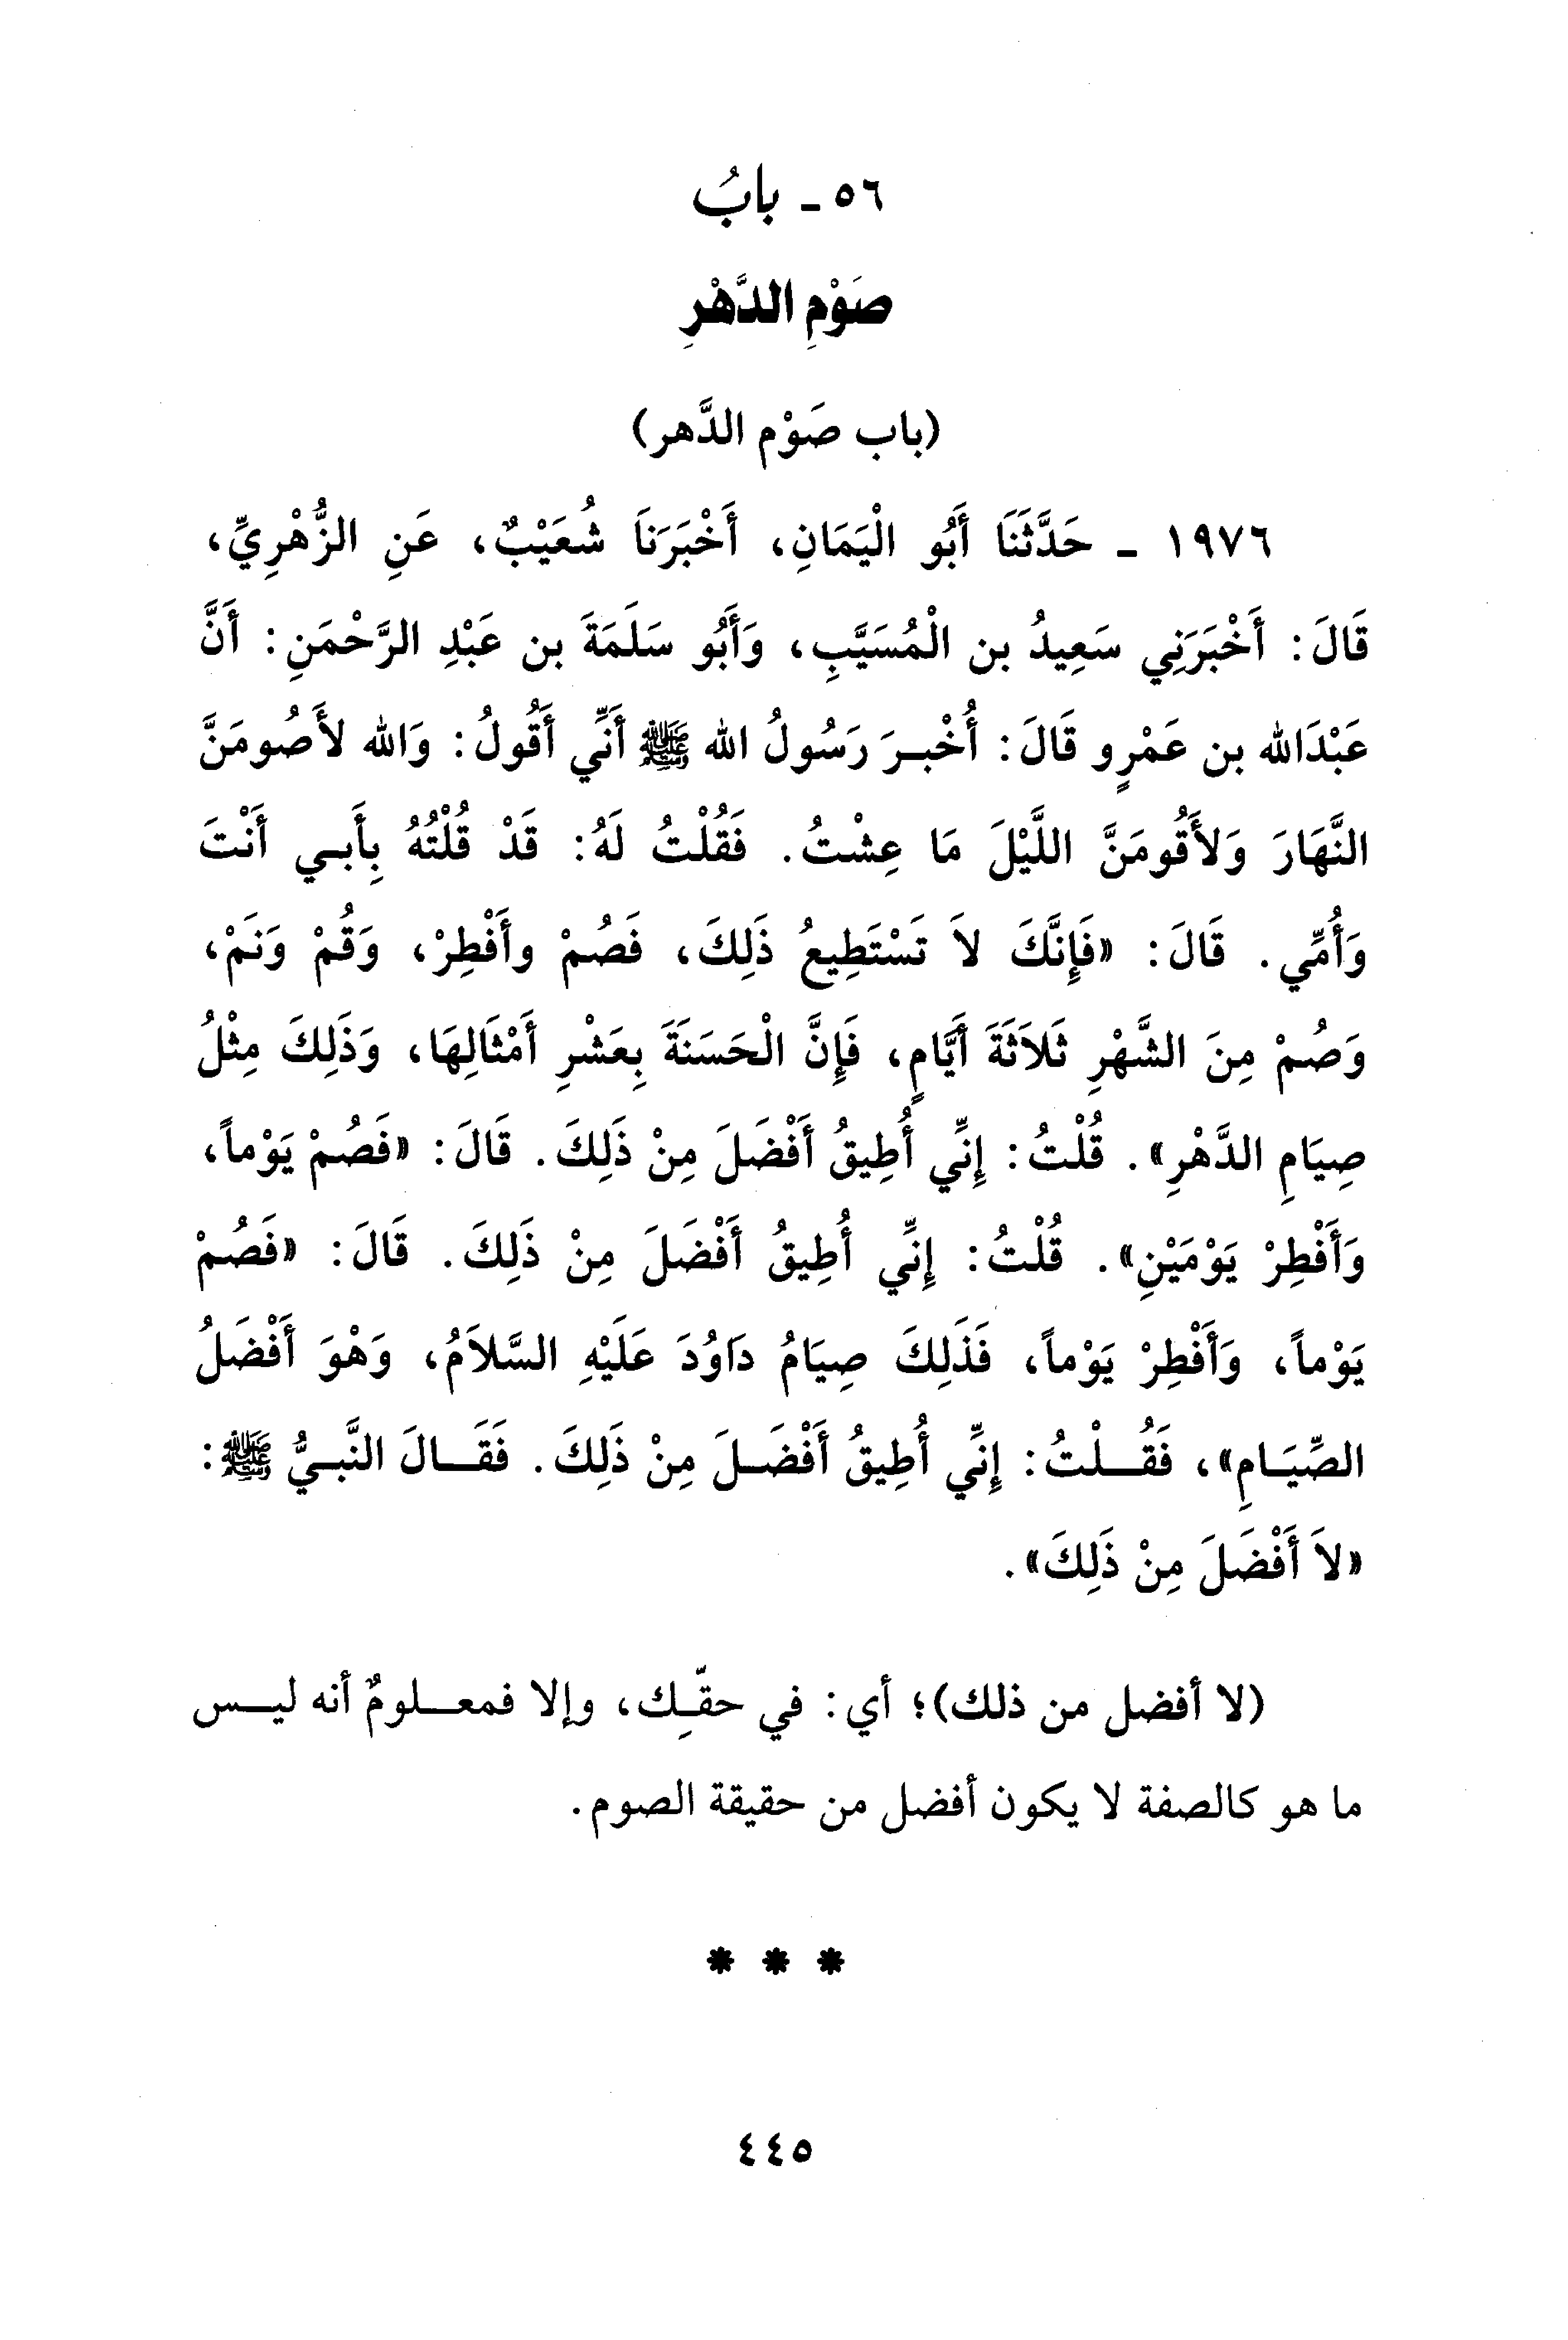 ٥٦ - بابُ
صَوْمِ الدَّهْرِ
(باب صَوْم الدَّهر)
١٩٧٦ - حَدَّثَنَا أَبُو الْيَمَانِ، أَخْبَرَنَا شُعَيْبٌ، عَنِ الزُّهْرِيِّ،
قَالَ: أَخْبَرَنِي سَعِيدُ بن الْمُسَيَّبِ، وَأَبُو سَلَمَةَ بن عَبْدِ الرَّحْمَنِ: أَنَّ
عَبْدَالله بن عَمْرٍو قَالَ: أُخْبِرَ رَسُولُ الله ﷺ أَنِّي أَقُولُ: وَالله لأَصُومَنَّ
النَّهَارَ وَلأَقُومَنَّ اللَّيْلَ مَا عِشْتُ. فَقُلْتُ لَهُ: قَدْ قُلْتُهُ بِأَبي أَنْتَ
وَأُمِّي. قَالَ: «فَإِنَّكَ لاَ تَسْتَطِيعُ ذَلِكَ، فَصُمْ وأَفْطِرْ، وَقُمْ وَنَمْ،
وَصُمْ مِنَ الشَّهْرِ ثَلاَثَةَ أَيَّامٍ، فَإِنَّ الْحَسَنَةَ بِعَشْرِ أَمْثَالِهَا، وَذَلِكَ مِثْلُ
صِيَامِ الدَّهْرِ». قُلْتُ: إِنِّي أُطِيقُ أَفْضَلَ مِنْ ذَلِكَ. قَالَ: «فَصُمْ يَوْماً،
وَأَفْطِرْ يَوْمَيْنِ». قُلْتُ: إِنِّي أُطِيقُ أَفْضَلَ مِنْ ذَلِكَ. قَالَ: «فَصُمْ
يَوْماً، وَأَفْطِرْ يَوْماً، فَذَلِكَ صِيَامُ دَاوُدَ عَلَيْهِ السَّلاَمُ، وَهْوَ أَفْضَلُ
الصِّيَامِ»، فَقُلْتُ: إِنِّي أُطِيقُ أَفْضَلَ مِنْ ذَلِكَ. فَقَالَ النَّبيُّ ﷺ:
«لاَ أَفْضَلَ مِنْ ذَلِكَ».
(لا أفضل من ذلك)؛ أي: في حقِّك، وإلا فمعلومٌ أنه ليس
ما هو كالصفة لا يكون أفضل من حقيقة الصوم.
* * *
٤٤٥